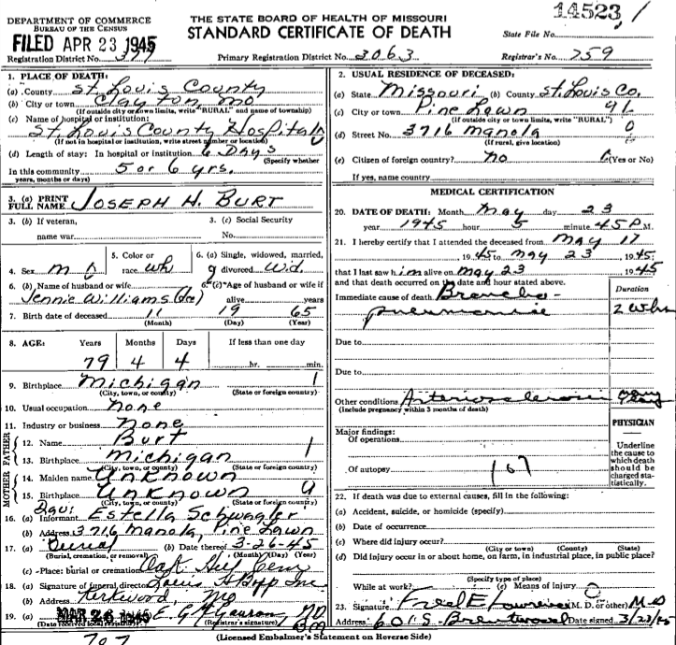 14523
DEPARTMENT OF COMMERCE
BUREAU OF THE CENSUS
THE STATE BOARD OF HEALTH OF MISSOURI
STANDARD CERTIFICATE OF DEATH
FILED APR 23 1945
State File No.
Registration District No.
Primary Registration District No. 3063
Registrar's No. 759
1. PLACE OF DEATH:
(a) County St. Louis County
(b) City or town Clayton, Mo
(If outside city or town limits, write "RURAL" and name of township)
(c) Name of hospital or institution:
St. Louis County Hospital
(If not in hospital or institution, write street number or location)
(d) Length of stay: In hospital or institution 6 Days
(Specify whether
In this community 5 or 6 yrs.
years, months or days)
3. (a) PRINT FULL NAME JOSEPH H. BURT
3. (b) If veteran, name war
3. (c) Social Security No.
4. Sex m
5. Color or race wh
6. (a) Single, widowed, married, divorced Wid.
6. (b) Name of husband or wife Jennie Williams (dec)
6. (c) Age of husband or wife if alive years
7. Birth date of deceased 11 19 65
(Month) (Day) (Year)
8. AGE: Years Months Days If less than one day
79 4 4 hr. min.
9. Birthplace Michigan 1
(City, town, or county) (State or foreign country)
10. Usual occupation none
11. Industry or business none
FATHER
12. Name Burt 1
13. Birthplace Michigan 1
(City, town, or county) (State or foreign country)
MOTHER
14. Maiden name Unknown
15. Birthplace Unknown 9
(City, town, or county) (State or foreign country)
16. (a) Informant Dau: Estella Schwagler
(b) Address 3716 Manola, Pine Lawn
17. (a) Burial (b) Date thereof 3-26-45
(Burial, cremation, or removal) (Month) (Day) (Year)
(c) Place: burial or cremation Oak Cem
18. (a) Signature of funeral director Louis H Bopp Inc
(b) Address Kirkwood, Mo
19. (a) MAR 26 1945
(Date received local registrar) (Registrar's signature)
707
2. USUAL RESIDENCE OF DECEASED:
(a) State Missouri (b) County St. Louis Co.
(c) City or town Pine Lawn
(If outside city or town limits, write "RURAL")
(d) Street No. 3716 Manola
(If rural, give location)
(e) Citizen of foreign country? no (Yes or No)
If yes, name country
MEDICAL CERTIFICATION
20. DATE OF DEATH: Month May day 23
year 1945 hour 5 minute 45 P.M.
21. I hereby certify that I attended the deceased from May 17
, 1945 to May 23, 1945;
that I last saw him alive on May 23, 1945
and that death occurred on the date and hour stated above.
Duration
Immediate cause of death Broncho-
pneumonia 2 wks
Due to
Due to
Other conditions Arteriosclerosis
(Include pregnancy within 3 months of death)
Major findings:
Of operations
Of autopsy
107
PHYSICIAN
Underline the cause to which death should be charged statistically.
22. If death was due to external causes, fill in the following:
(a) Accident, suicide, or homicide (specify)
(b) Date of occurrence
(c) Where did injury occur?
(City or town) (County) (State)
(d) Did injury occur in or about home, on farm, in industrial place, in public place?
(Specify type of place)
While at work? (e) Means of injury
23. Signature Fred E M. D. or other) M.D
Address 601 S. Brentwood Date signed 3/23/45
(Licensed Embalmer's Statement on Reverse Side)